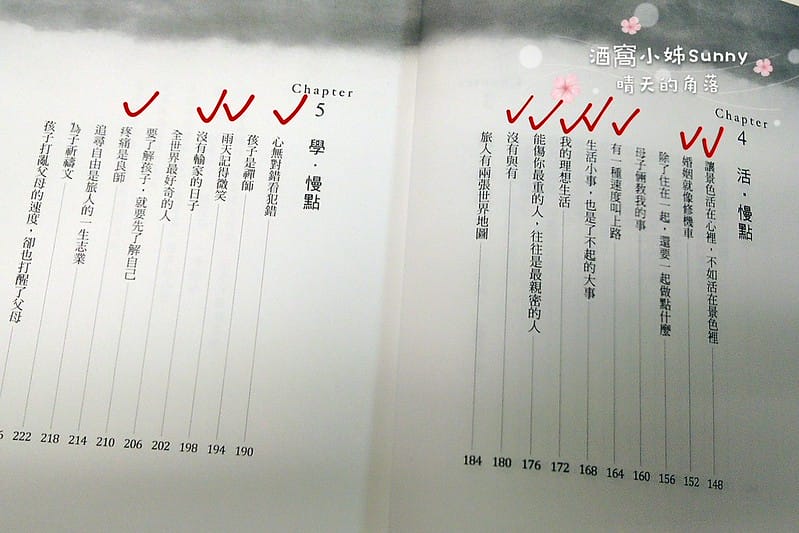 酒窩小姊Sunny
晴天的角落
Chapter 4
活‧慢點
讓景色活在心裡，不如活在景色裡 148
婚姻就像修機車 152
除了住在一起，還要一起做點什麼 156
母子倆教我的事 160
有一種速度叫上路 164
生活小事，也是了不起的大事 168
我的理想生活 172
能傷你最重的人，往往是最親密的人 176
沒有與有 180
旅人有兩張世界地圖 184
Chapter 5
學‧慢點
心無對錯看犯錯 190
孩子是禪師 194
雨天記得微笑 198
沒有輸家的日子 202
全世界最好奇的人 206
要了解孩子，就要先了解自己 210
疼痛是良師 214
追尋自由是旅人的一生志業 218
為子祈禱文 222
孩子打亂父母的速度，卻也打醒了父母